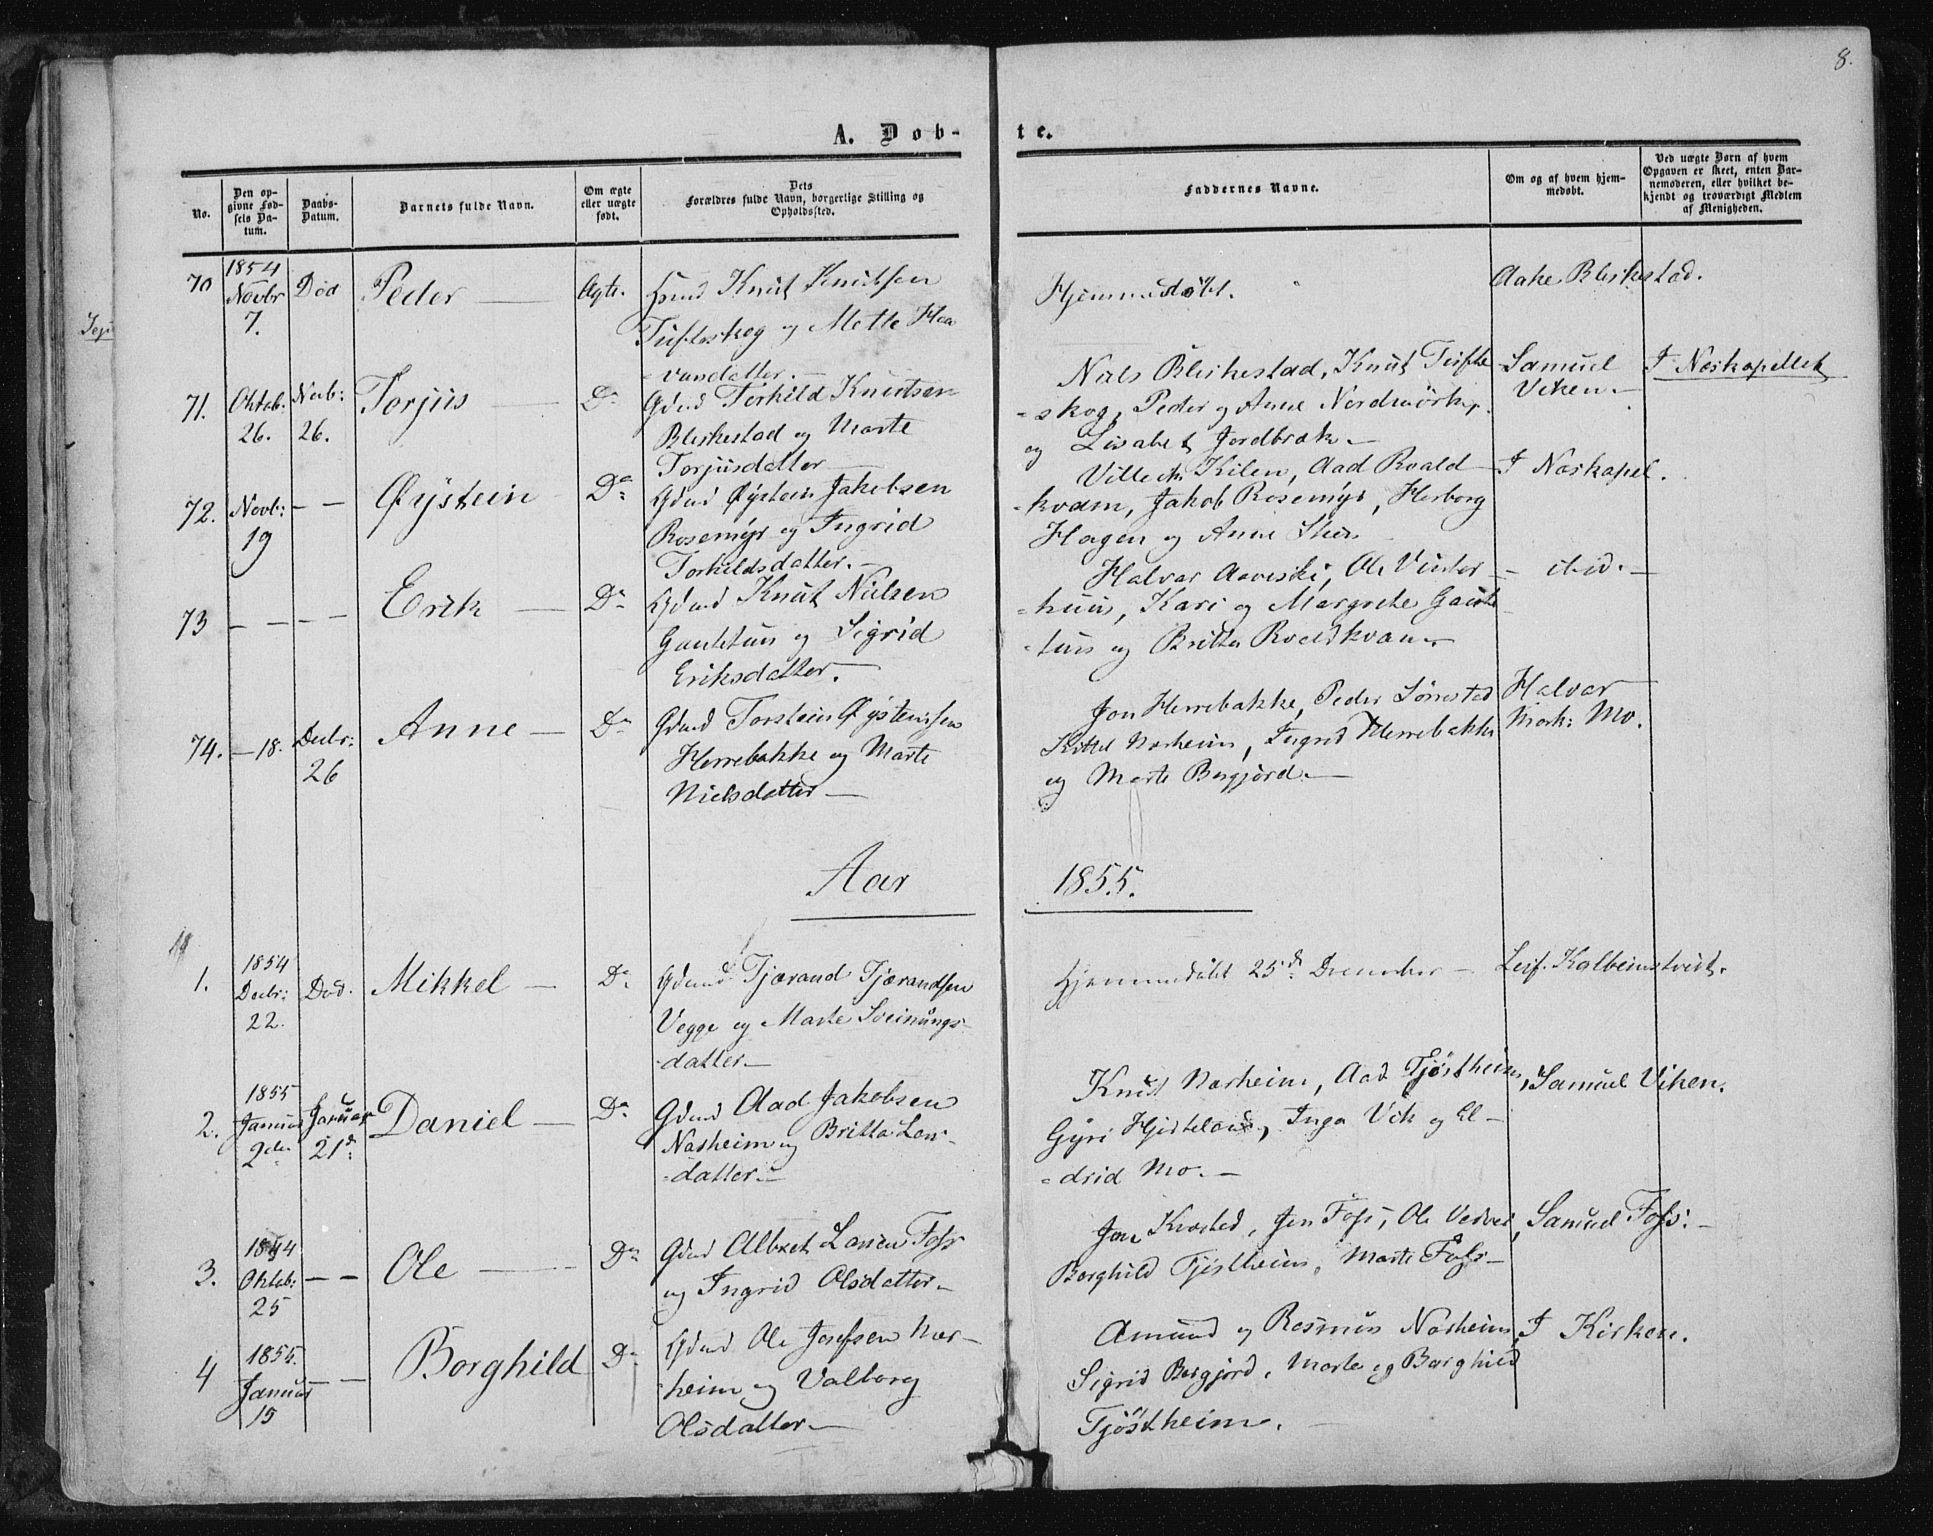 8.
A. Døb-
te.
No.
Den op-
givne Fød-
sels Da-
tum.
Daabs-
Datum.
Barnets fulde Navn.
Om ægte
eller uægte
født.
Dets
Forældres fulde Navn, borgerlige Stilling og
Opholdssted.
Faddernes Navne.
Om og af hvem hjem-
medøbt.
Ved uægte Børn af hvem
Opgaven er skeet, enten Bar-
nemoderen, eller hvilket be-
kjendt og troværdigt Medlem
af Menigheden.
70
1854
Novbr
7.
Død
Peder —
Ægte.
Knut Knutsen
Tufteskog og Mette Haa
-vardatter. —
Hjemmedøbt.
Aake Bleskestad.
71.
Oktob:
26.
Novb:
26.
Torjus —
Do
Gdmd Torkild Knutsen
Bleskestad og Marte
Torjusdatter —
Niels Bleskestad, Knut Tufte
-skog, Peder og Anne Nordmörk,
og Lisabet Jordbræk. —
Samuel
Viken. —
I Næskapellet
72.
Novb:
19
— —
Øystein
Do
Gdmd Øystein Jakobsen
Rosemyr og Ingrid
Torkildsdatter. —
Kilen, Aad Roald
-kvam, Jakob Rosemyr, Herborg
Hagen og Anne
— I Næskapel.
73
— —
— —
Erik —
Do
Gdmd Knut Nielsen
Gautetun og Sigrid
Eriksdatter. —
Halvar Aaveski, Ole Vinter
-huus, Kari og Margrete Gaute
-tun og Britta Roaldkvam. —
— ibid. —
74.
— 18.
Decbr:
26
Anne —
Do
Gdmd Torstein Øystensen
Herrebakke og Marte
Nielsdatter —
Jon Herrebakke, Peder Sørestad
Kittel Narheim, Ingrid Herrebakke
og Marte Bergjord. —
Halvar
Mark: Mo.
Aar
1855.
1.
1854
Decbr:
22.
Død.
Mikkel —
Do
Gdmd Tjærand Tjærandsen
Vegge og Marte Sveinungs-
-datter —
Hjemmedøbt 25de December —
Leif Kolbeinstveit.
2.
1855
Januar
2den
Januar
21d:
Daniel —
Do
Gdmd Aad Jakobsen
Narheim og Britta Lars-
-datter. —
Knut Narheim, Aad Tjøstheim,
Gyri Hjorteland, Inga Vik og El-
-drid Mo. —
Samuel Viken.
3.
1854
Oktob:
25
— —
Ole —
Do
Gdmd Albret Larsen Foss
og Ingrid Olsdatter —
Jon Krosted, Jon Foss, Ole
Borghild Tjøstheim, Marte Foss —
Samuel Foss: —
4
1855.
Januar
15
— —
Borghild
Do
Gdmd Ole Josefsen Nar-
-heim og Valborg
Olsdatter —
Amund og Rasmus Narheim,
Sigrid Bergjord, Marte og Borghild
Tjöstheim. —
I Kirken.